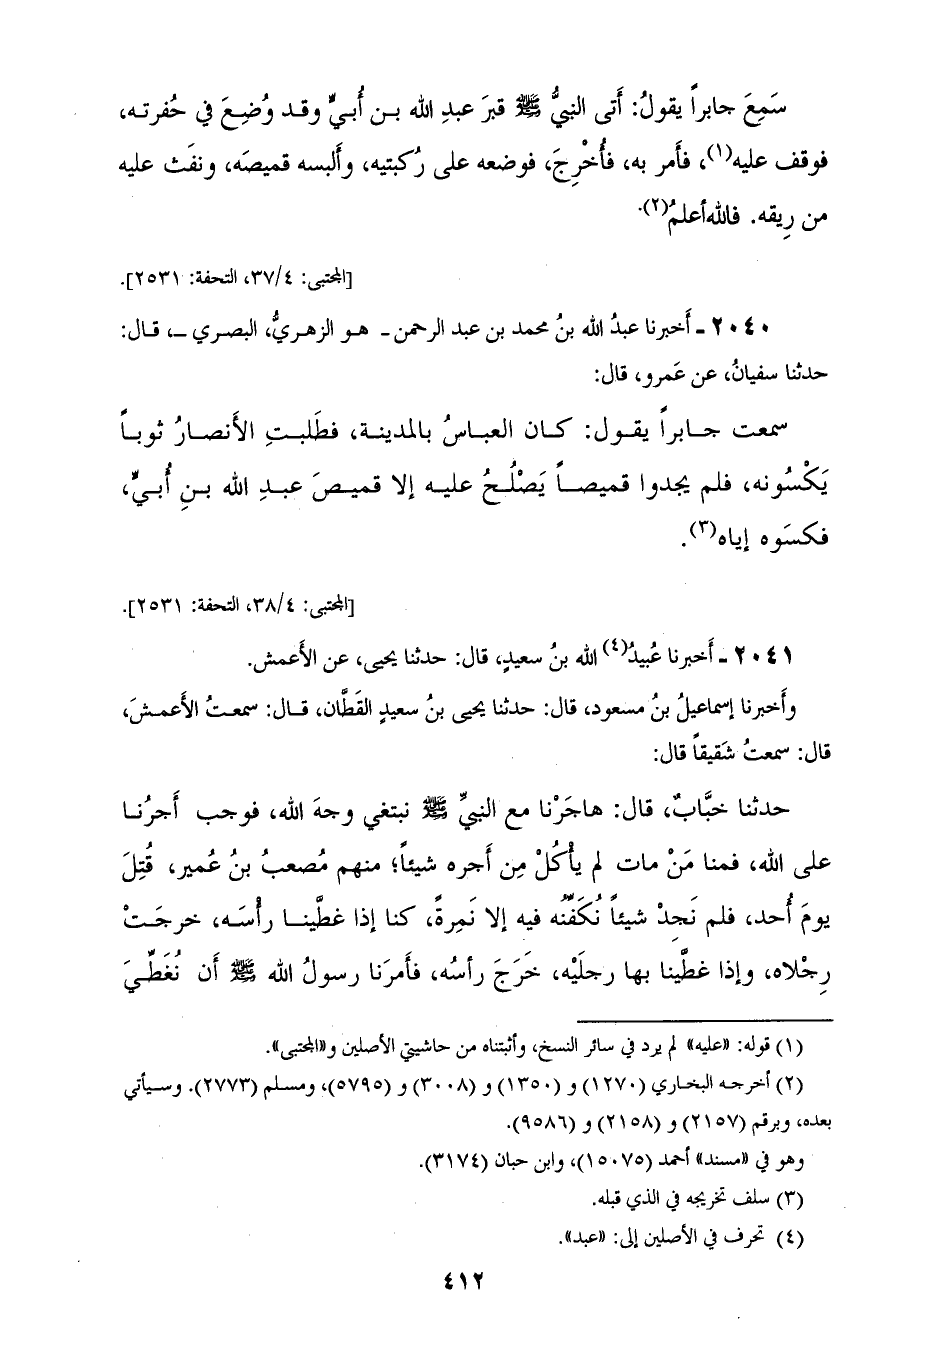 سَمِعَ جابراً يقولُ: أَتى النبيُّ ﷺ قبرَ عبدِ الله بـن أُبيٍّ وقـد وُضِعَ في حُفرتـه،
فوقف عليه(١)، فأمر به، فأُخْرِجَ، فوضعه على رُكبتيه، وأَلبسه قميصَه، ونفَث عليه
من رِيقه. فالله أعلمُ(٢).
[المجتبى: ٣٧/٤، التحفة: ٢٥٣١].
٢٠٤٠ ـ أَخبرنا عبدُ الله بنُ محمد بن عبد الرحمن ـ هـو الزهـريُّ، البصري ـ، قـال:
حدثنا سفيانُ، عن عَمرو، قال:
سمعت جـابراً يقـول: كـان العبـاسُ بالمدينـة، فطَلبـتِ الأَنصـارُ ثوبـاً
يَكْسُونه، فلم يجدوا قميصـاً يَصْلُـحُ عليـه إلا قميـصَ عبـدِ الله بـنِ أُبـيٍّ،
فكسَوه إياه(٣).
[المجتبى: ٣٨/٤، التحفة: ٢٥٣١].
٢٠٤١ ـ أَخبرنا عُبيدُ(٤) الله بنُ سعيدٍ، قال: حدثنا يحيى، عن الأَعمش.
وأَخبرنا إسماعيلُ بنُ مسعود، قال: حدثنا يحيى بنُ سعيدٍ القَطَّان، قـال: سمعـتُ الأَعمـشَ،
قال: سمعتُ شَقيقاً قال:
حدثنا خبَّابٌ، قال: هاجَرْنا مع النبيِّ ﷺ نبتغي وجهَ الله، فوجب أَجرُنـا
على الله، فمنا مَنْ مات لم يأْكُلْ مِن أَجره شيئاً؛ منهم مُصعبُ بنُ عُمير، قُتِلَ
يومَ أُحد، فلم نَجِدْ شيئاً نُكَفِّنُه فيه إلا نَمِرةً، كنا إذا غطَّينـا رأْسَـه، خرجَـتْ
رِجْلاه، وإذا غطَّينا بها رجلَيْه، خَرَجَ رأسُه، فأمرَنا رسولُ الله ﷺ أَن نُغَطِّـيَ
(١) قوله: «عليه» لم يرد في سائر النسخ، وأثبتناه من حاشيتي الأصلين و«المجتبى».
(٢) أخرجـه البخـاري (١٢٧٠) و (١٣٥٠) و (٣٠٠٨) و (٥٧٩٥)، ومسلم (٢٧٧٣). وسـيأتي
بعده، وبرقم (٢١٥٧) و (٢١٥٨) و (٩٥٨٦).
وهو في «مسند» أحمد (١٥٠٧٥)، وابن حبان (٣١٧٤).
(٣) سلف تخريجه في الذي قبله.
(٤) تحرف في الأصلين إلى: «عبد».
٤١٢